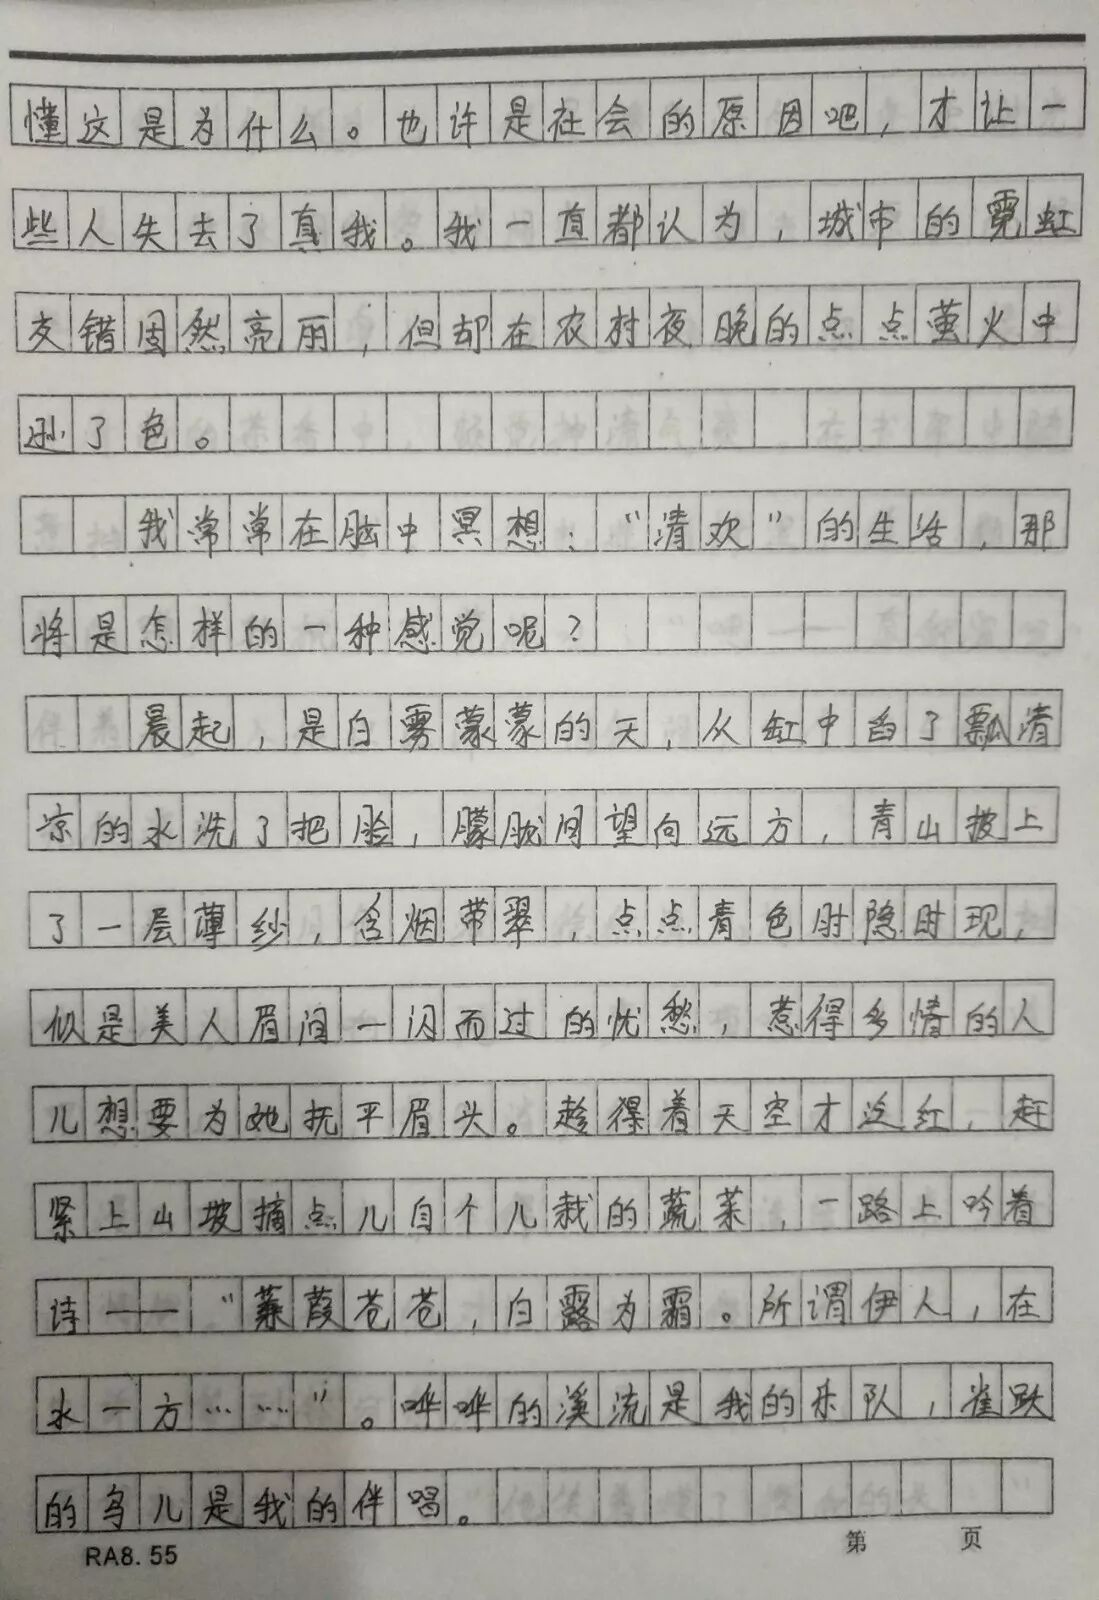 懂这是为什么。也许是社会的原因吧，才让一
些人失去了真我。我一直都认为，城市的霓虹
交错固然亮丽，但却在农村夜晚的点点萤火中
逊了色。
我常常在脑中冥想：“清欢”的生活，那
将是怎样的一种感觉呢？
晨起，是白雾蒙蒙的天，从缸中舀了瓢清
凉的水洗了把脸，朦胧间望向远方，青山披上
了一层薄纱，含烟带翠，点点青色时隐时现，
似是美人眉间一闪而过的忧愁，惹得多情的人
儿想要为她抚平眉头。趁得着天空才泛红，赶
紧上山坡摘点儿自个儿栽的蔬菜，一路上吟着
诗——“蒹葭苍苍，白露为霜。所谓伊人，在
水一方……”。哗哗的溪流是我的乐队，雀跃
的鸟儿是我的伴唱。
RA8.55 第 页